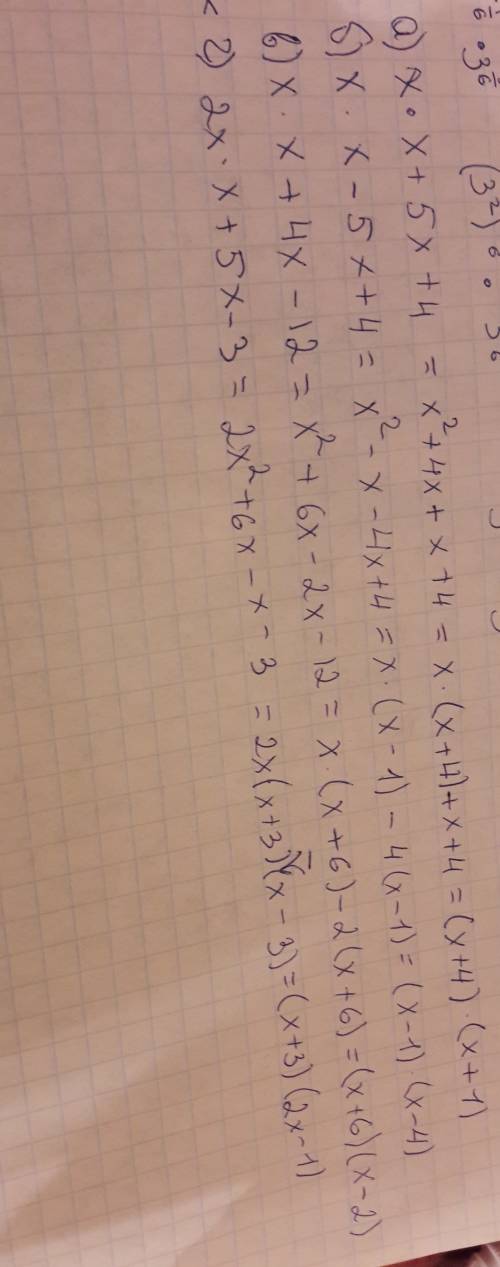 (3²)⁶ · 3⁶
а) x · x + 5x + 4 = x² + 4x + x + 4 = x · (x + 4) + x + 4 = (x + 4) · (x + 1)
б) x · x - 5x + 4 = x² - x - 4x + 4 = x · (x - 1) - 4(x - 1) = (x - 1) · (x - 4)
в) x · x + 4x - 12 = x² + 6x - 2x - 12 = x · (x + 6) - 2(x + 6) = (x + 6)(x - 2)
г) 2x · x + 5x - 3 = 2x² + 6x - x - 3 = 2x(x + 3) - (x - 3) = (x + 3)(2x - 1)